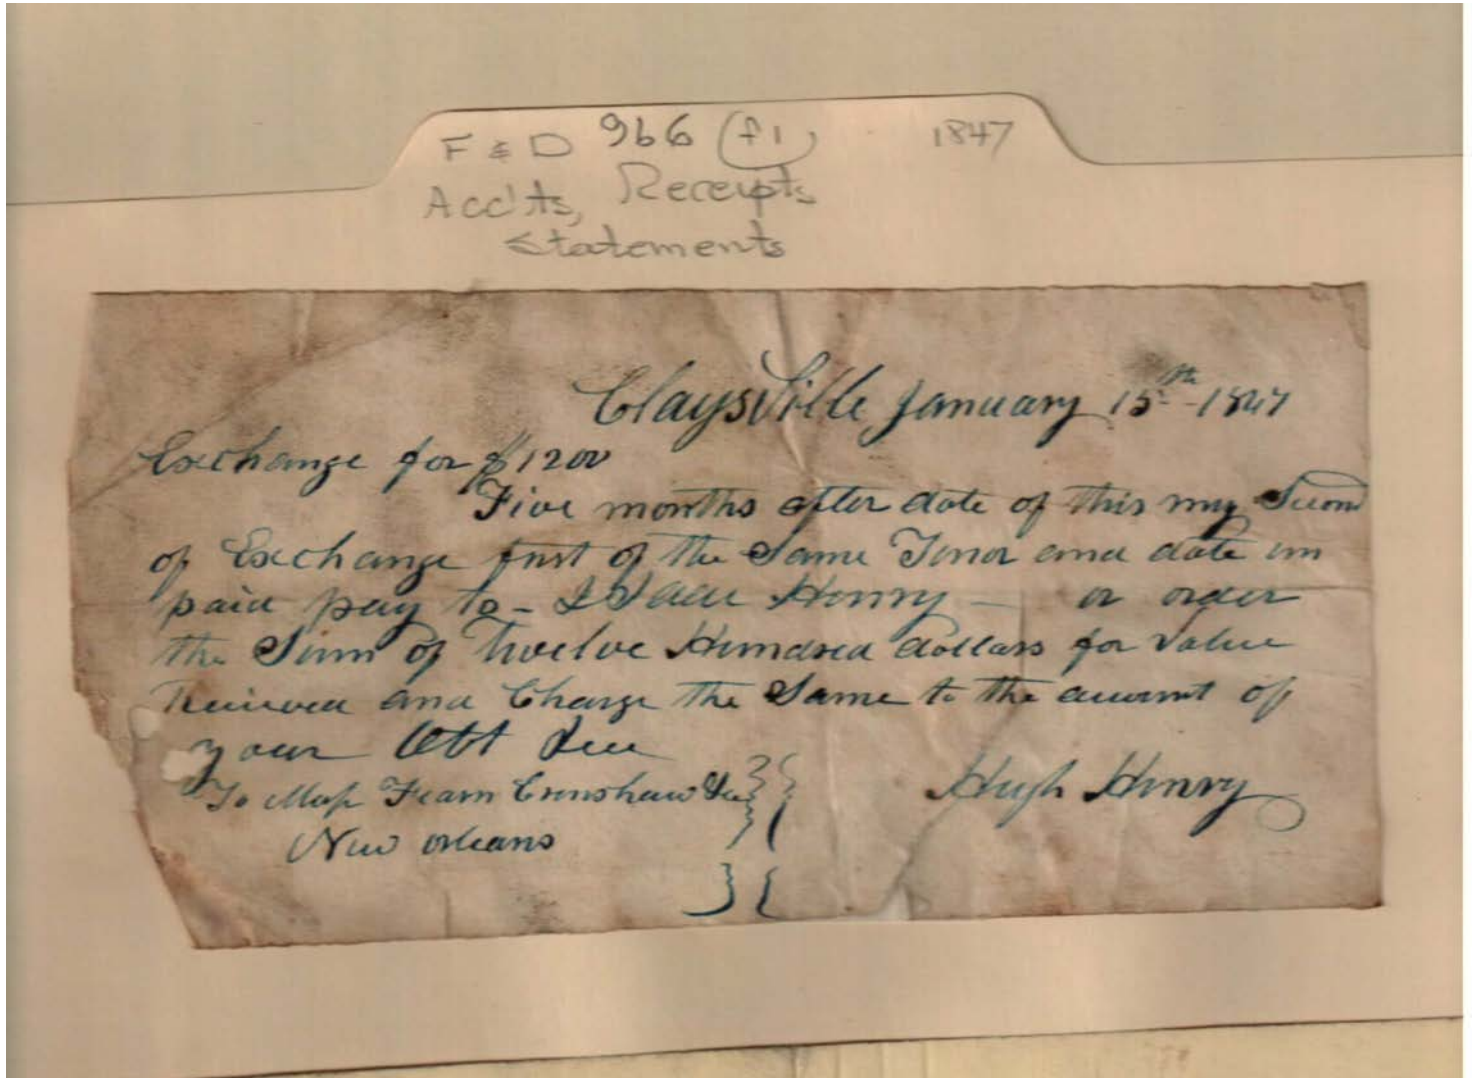 F & D 966 (f1) 1847
Acc'ts, Receipts,
Statements
Claysville January 15th - 1847
Exchange for $1200
Five months after date of this my Second
of Exchange first of the Same Tenor and date un
paid pay to - Isaac Henry — or order
the Sum of Twelve Hundred dollars for value
Received and Charge the Same to the account of
your Obt
To Fearn Crenshaw
New orleans
Hugh Henry